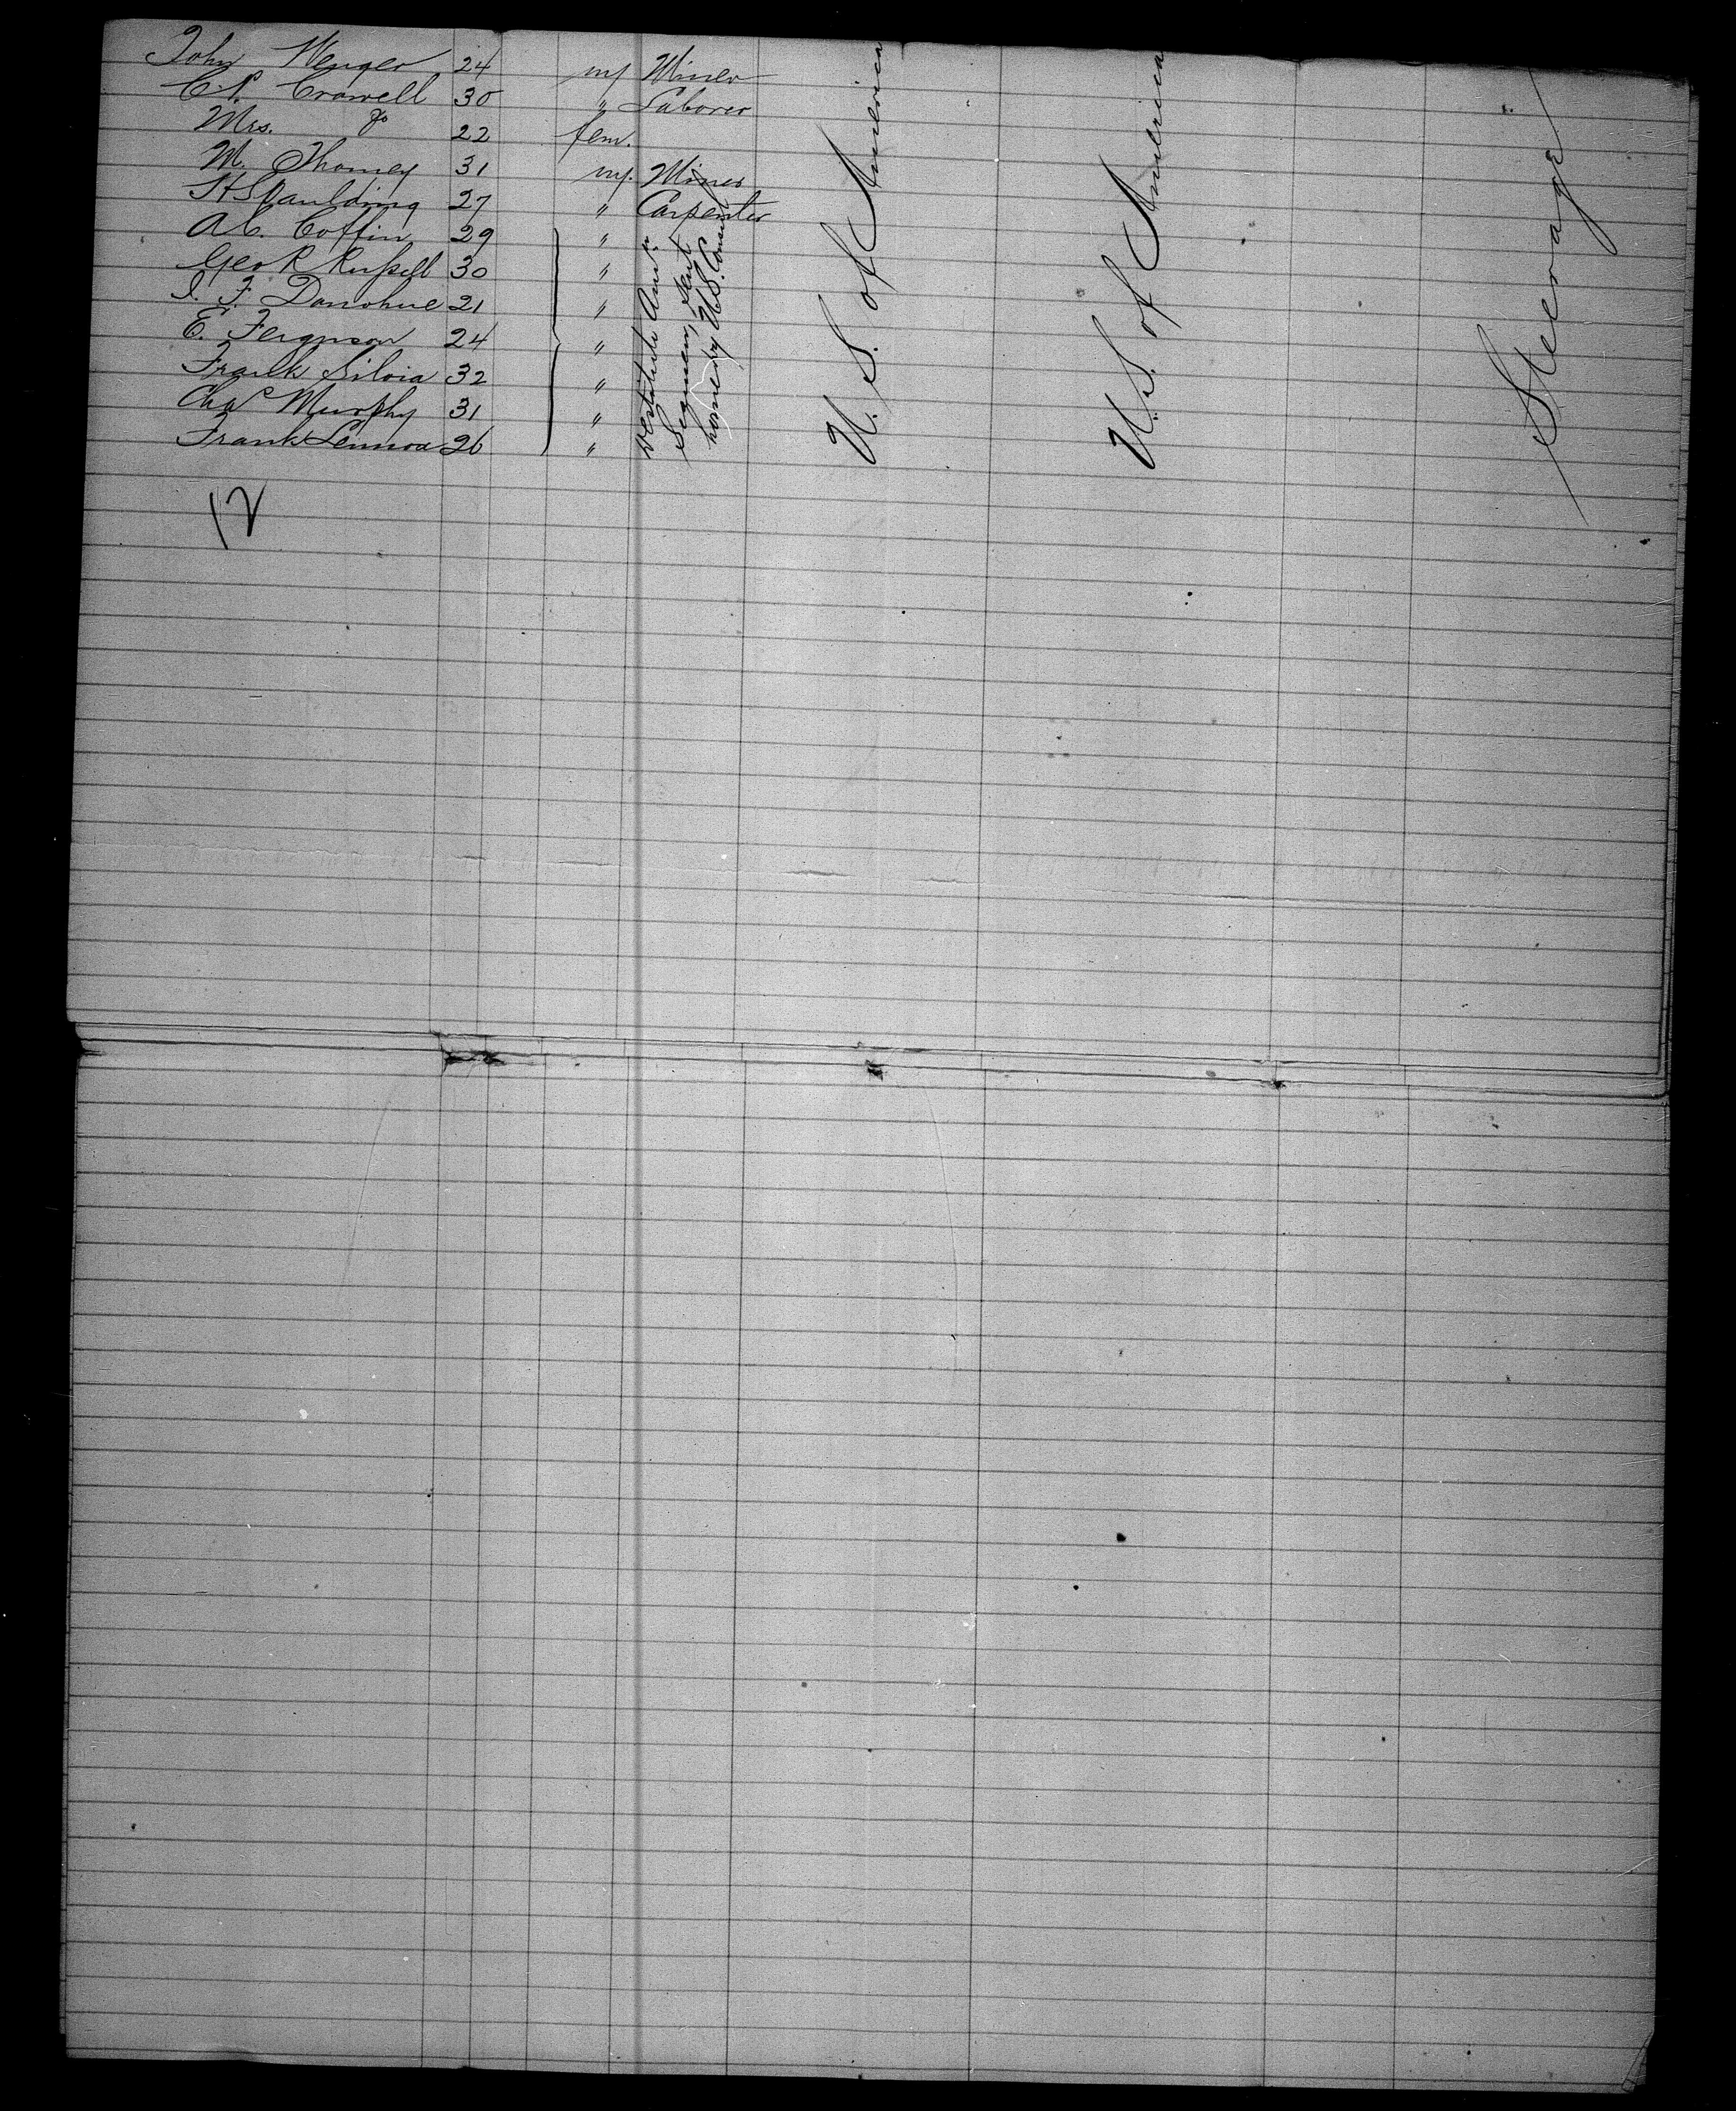 John Wenger 24 m/ Miner
C. S. Crowell 30 " Laborer
Mrs. Do 22 fem.
M. Thomey 31 m/. Miner
H Spaulding 27 " Carpenter
A. C. Coffin 29 "
Geo R Russell 30 "
J. F. Donohue 21 "
E. Ferguson 24 "
Frank Silvia 32 "
Chas Murphy 31 "
Frank Lennox 26 "
Destitute Amn
Seamen, sent
home by U.S. Consul
U. S. of America
U. S. of America
Steerage
12